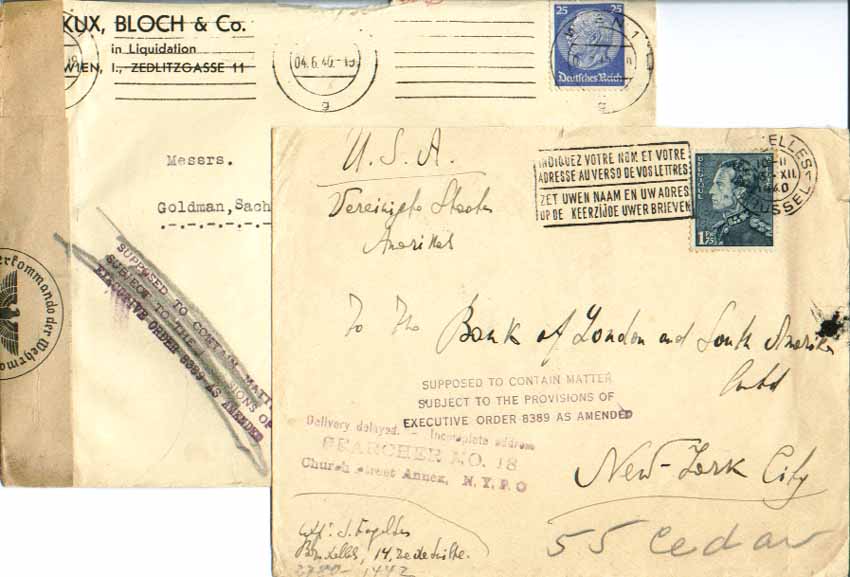 KUX, BLOCH & Co.
in Liquidation
WIEN, I., ZEDLITZGASSE 11
04.6.40.-19
g
25 25
Deutsches Reich
g
Messrs.
Goldman, Sach
SUPPOSED TO CONTAIN MATT
SUBJECT TO THE PROVISIONS OF
EXECUTIVE ORDER 8389 AS AMENDED
erkommando der Wehrma
U.S.A.
Vereinigte Staaten
Amerikas
INDIQUEZ VOTRE NOM ET VOTRE
ADRESSE AU VERSO DE VOS LETTRES
ZET UWEN NAAM EN UW ADRES
OP DE KEERZIJDE UWER BRIEVEN
ELLES
XII
1940
BRUSSEL
BELGIQUE
1 Fr 75
To The Bank of London and South Amerika
Limtd
SUPPOSED TO CONTAIN MATTER
SUBJECT TO THE PROVISIONS OF
EXECUTIVE ORDER 8389 AS AMENDED
Delivery delayed. - Incomplete address
SEARCHER NO. 18
Church Street Annex, N.Y.P.O
New-York City
55 Cedar
Bruxelles, 14,